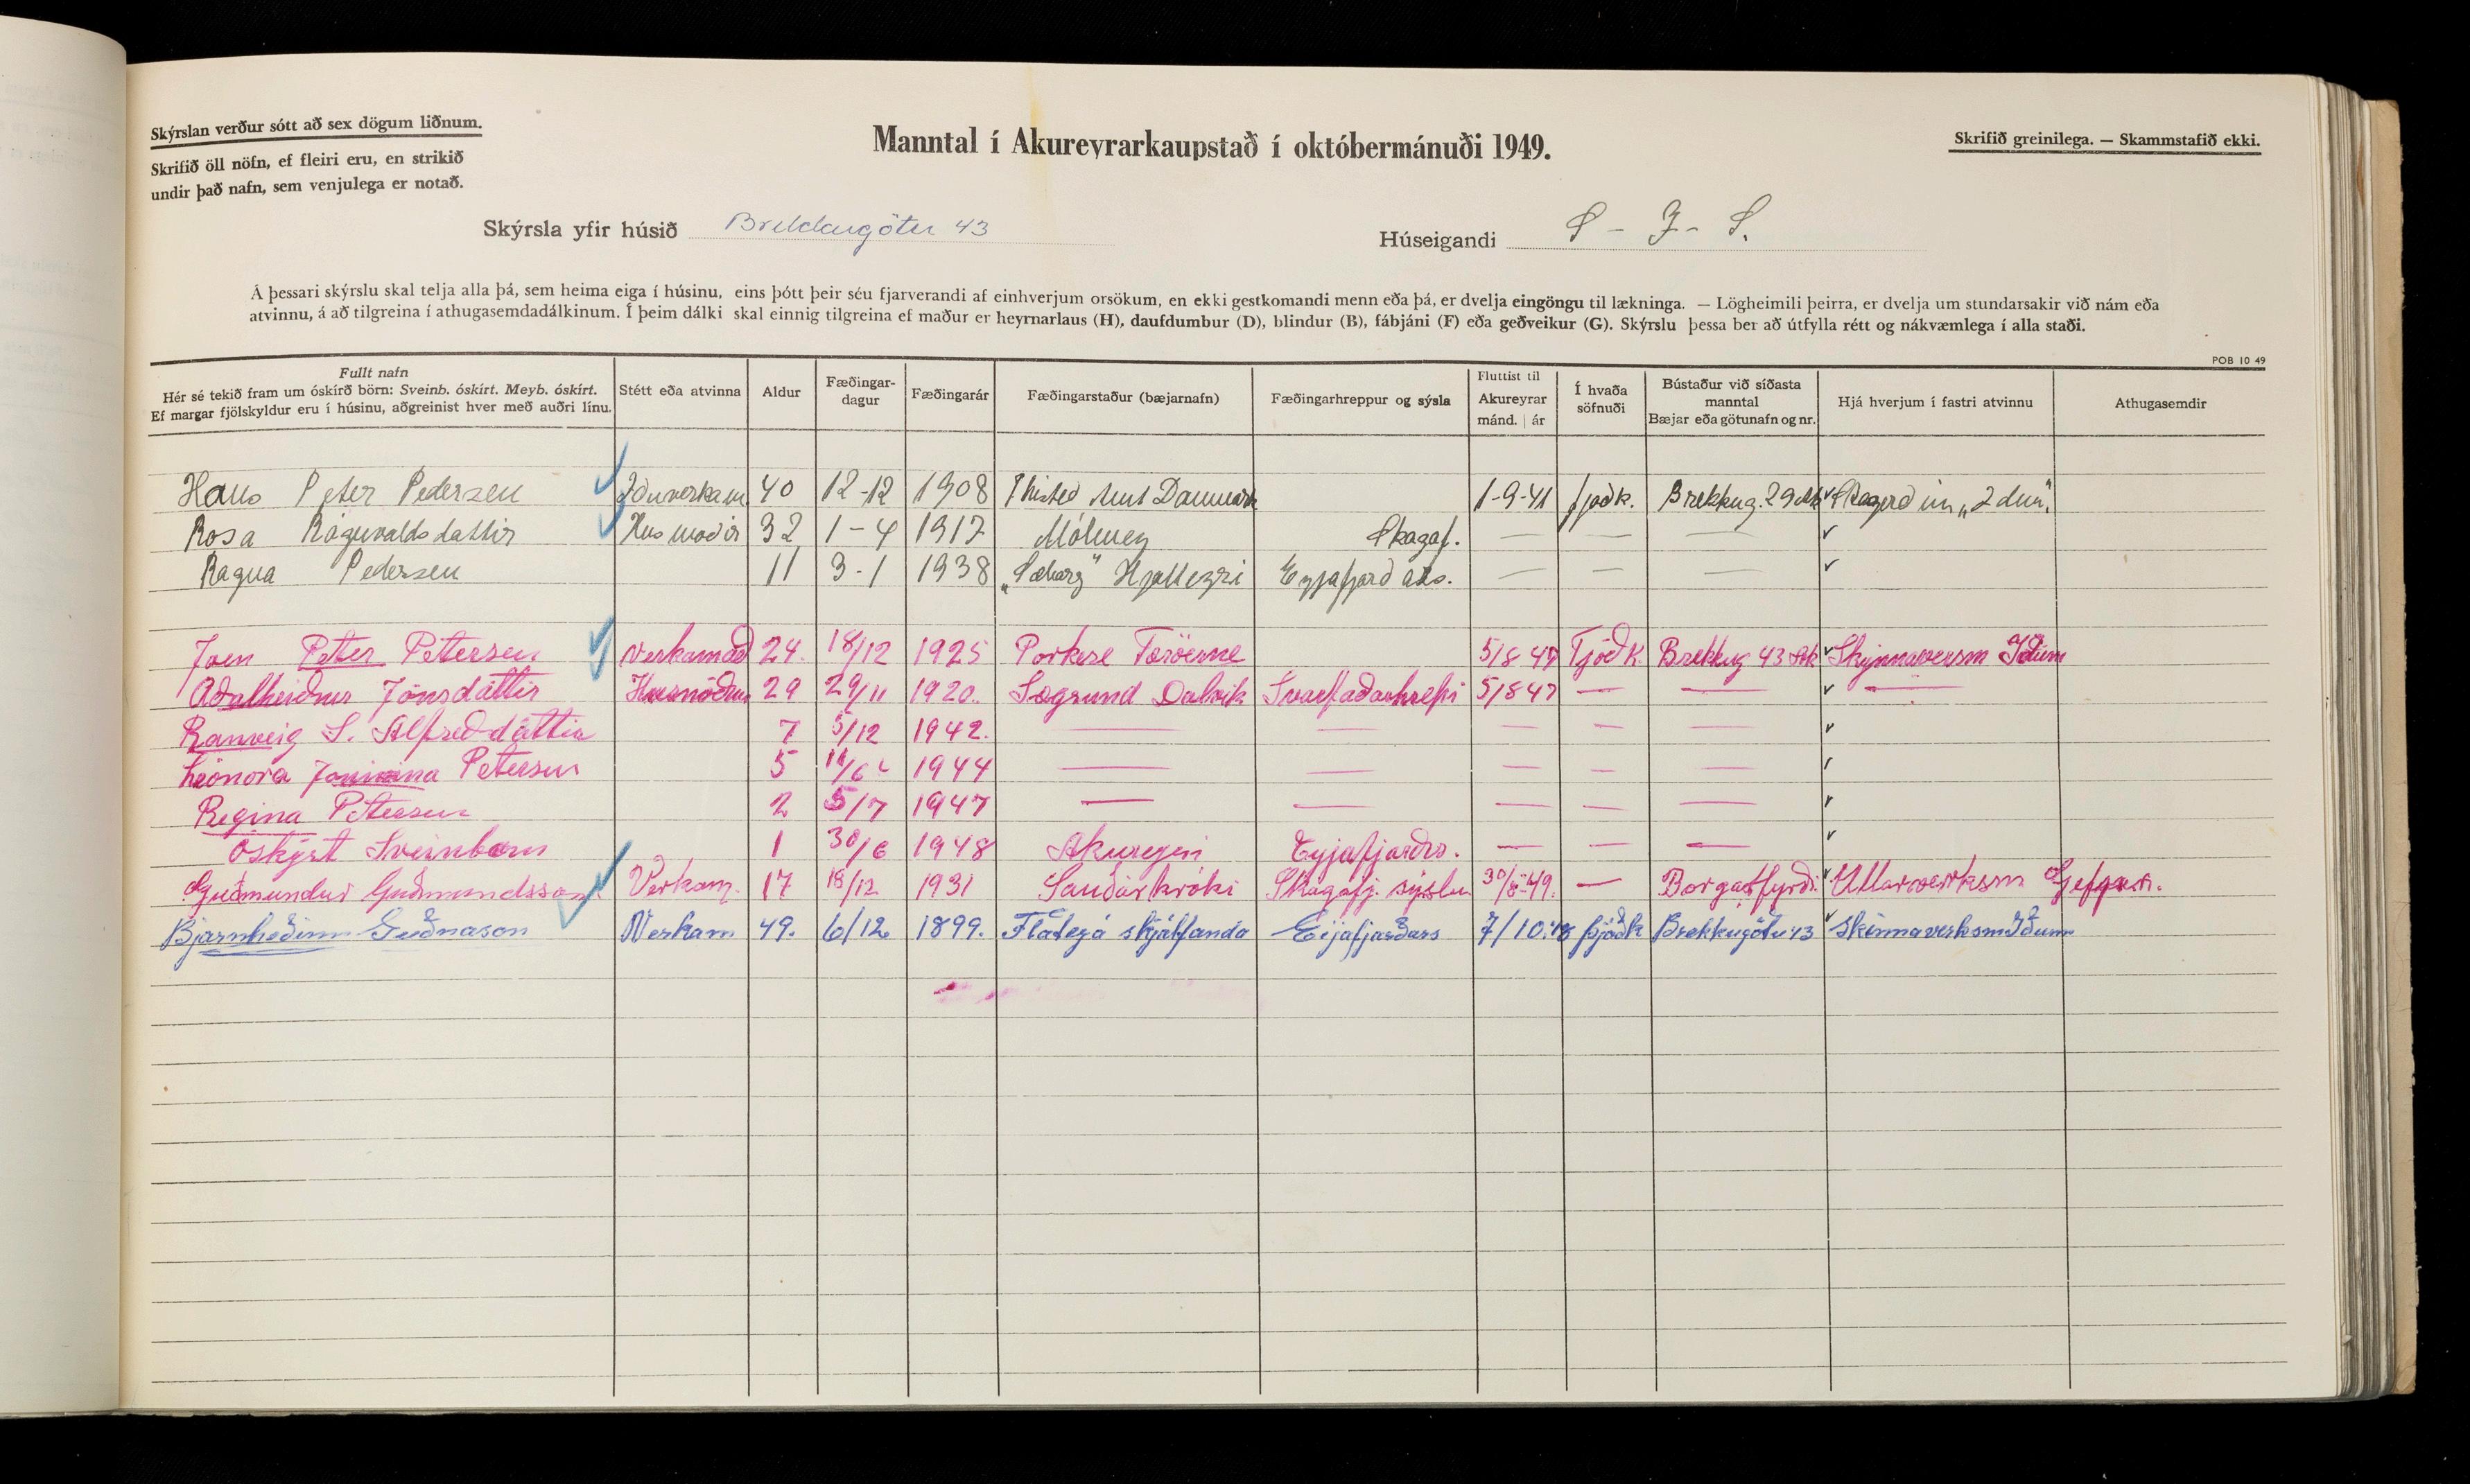 Skýrslan verður sótt að sex dögum liðnum.
Skrifið öll nöfn, ef fleiri eru, en strikið
undir það nafn, sem venjulega er notað.
Manntal í Akureyrarkaupstað í októbermánuði 1949.
Skrifið greinilega. — Skammstafið ekki.
Skýrsla yfir húsið Brekkugötu 43
Húseigandi S - Í - S.
Á þessari skýrslu skal telja alla þá, sem heima eiga í húsinu, eins þótt þeir séu fjarverandi af einhverjum orsökum, en ekki gestkomandi menn eða þá, er dvelja eingöngu til lækninga. — Lögheimili þeirra, er dvelja um stundarsakir við nám eða
atvinnu, á að tilgreina í athugasemdadálkinum. Í þeim dálki skal einnig tilgreina ef maður er heyrnarlaus (H), daufdumbur (D), blindur (B), fábjáni (F) eða geðveikur (G). Skýrslu þessa ber að útfylla rétt og nákvæmlega í alla staði.
POB 10 49
Fullt nafn
Hér sé tekið fram um óskírð börn: Sveinb. óskírt. Meyb. óskírt.
Ef margar fjölskyldur eru í húsinu, aðgreinist hver með auðri línu.
Stétt eða atvinna
Aldur
Fæðingar-
dagur
Fæðingarár
Fæðingarstaður (bæjarnafn)
Fæðingarhreppur og sýsla
Fluttist til
Akureyrar
mánd. | ár
Í hvaða
söfnuði
Bústaður við síðasta
manntal
Bæjar eða götunafn og nr.
Hjá hverjum í fastri atvinnu
Athugasemdir
Hans Peter Pedersen Iðnverkam. 40 12-12 1908 Thisted Amt Danmark 1-9-41 þjóðk. Brekkug. 29 Ak
Rosa Rögnvaldsdottir Husmoðir 32 1-4 1917 Málmey Skagaf. — — —
Ragna Pedersen 11 3-1 1938 „Sæborg" Hjalteyri Eyjafjarðars. — — —
Joen Peter Petersen Verkamað 24. 18/12 1925 Porkere Færöerne 5/8 47 Tjóðk. Brekkug 43 Ak Skinnaverksm Iðunn
Aðalheiður Jónsdóttir Húsmóður 29 29/11 1920. Sægrund Dalvik Svarfaðarhrepi 5/8 47 — — —
Ranveig S. Alfreðdóttir 7 5/12 1942. — — — — —
Leónora Jonimina Petersen 5 11/6 1944 — — — — —
Regina Petersen 2 5/7 1947 — — — — —
Óskýrt Sveinbarn 1 30/6 1948 Akureyri Eyjafjarðrs. — — —
Guðmundur Guðmundsson Verkam. 17 18/12 1931 Sauðárkróki Skagafj. sýslu 30/8-49. — Borgarfyrði. Ullarverksm Gefjun.
Bjarnheðinn Guðnason Verkam 49. 6/12 1899. Flatey á skjálfanda Eijafjarðars 7/10.48 þjóðk Brekkugötu 43 Skinnaverksm Iðunn